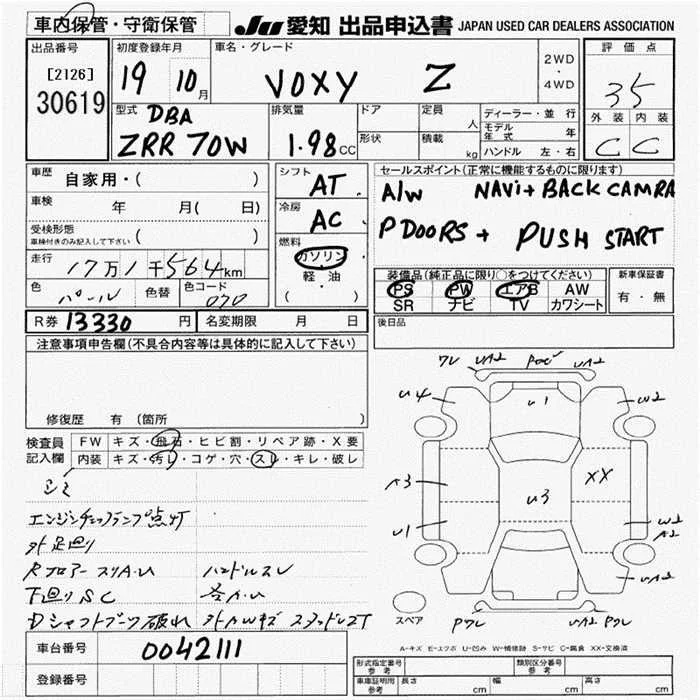 車内保管・守衛保管 JU 愛知 出品申込書 JAPAN USED CAR DEALERS ASSOCIATION
出品番号 初度登録年月 車名・グレード 2WD ・ 4WD 評価点
[2126] 30619 19 10月 VOXY Z 35
型式 DBA ZRR 70W 排気量 1.98 CC ドア 形状 定員 人 積載 kg ディーラー・並行 モデル年式 年 ハンドル 左・右 外装 内装 C C
車歴 自家用・( ) シフト AT セールスポイント(正常に機能するものに限ります)
車検 年 月( 日) 冷房 AC A/W NAVi+BACK CAMRA
受検形態 車検付きのみ記入して下さい ( ) P DOORS + PUSH START
走行 17万1千564km 燃料 ガソリン 軽・油 ( )
色 パール 色替 色コード 070
装備品(純正品に限り○をつけてください) 新車保証書
PS PW エアB AW 有・無
SR ナビ TV カワシート
R券 13330 円 名変期限 月 日 後日品
注意事項申告欄(不具合内容等は具体的に記入して下さい)
修復歴 有 (箇所 )
検査員記入欄 FW キズ・飛石・ヒビ割・リペア跡・X要
内装 キズ・汚れ・コゲ・穴・スレ・キレ・破レ
シミ
エンジンチェックランプ点灯
外足廻り
Rフロアースリ A.U ハンドルスレ
下廻りSC 各A.U
Dシャフトブーツ破れ 外AWキズ スタッドレスT
ワレ UA2 UA2
U4 U1 W2
A3 U3 XX
U1 W2 A2
スペア Pワレ UA2 Pワレ
A-キズ E-エクボ U-凹み W-補修跡 S-サビ C-腐食 XX-交換済
車台番号 0042111
登録番号
形式指定番号 参考 類別区分番号 参考
車庫証明用 参考 長さ cm 幅 cm 高さ cm